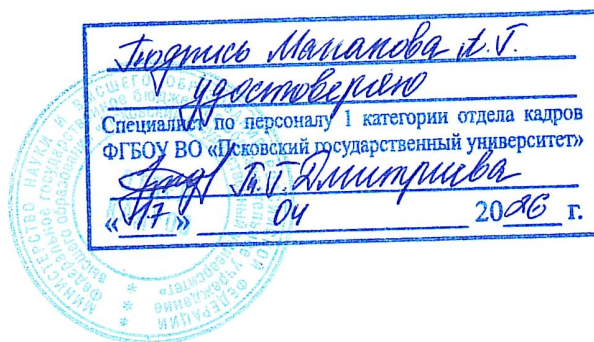 Подпись Манакова А.Г.
удостоверяю
Специалист по персоналу 1 категории отдела кадров
ФГБОУ ВО «Псковский государственный университет»
Дмитриева
«17» 04 2026 г.
МИНИСТЕРСТВО НАУКИ И ВЫСШЕГО ОБР
ОЙ ФЕДЕРАЦИИ